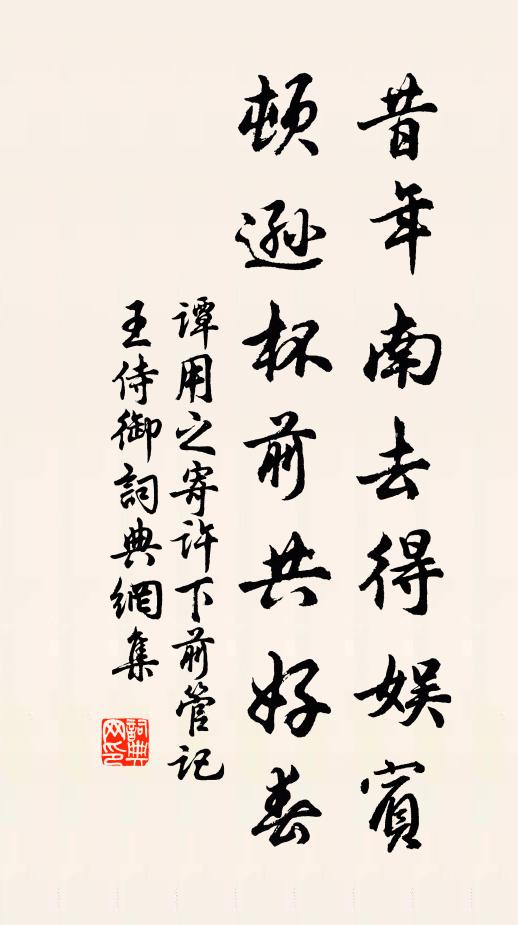 昔年南去得娱賓
頓遜杯前共好春
譚用之寄許下前管記
王侍御詞典網集
詞典網印